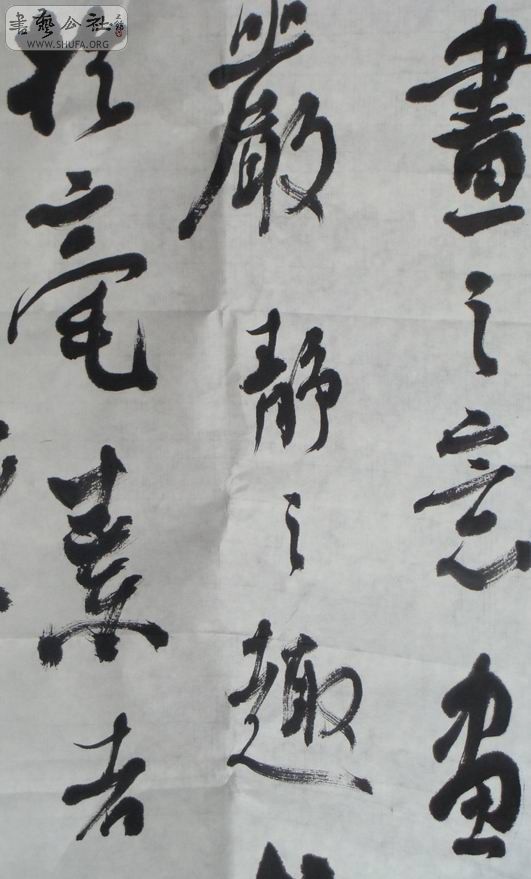 書藝公社
WWW.SHUFA.ORG
畫之意畫
嚴靜之趣
於毫素者